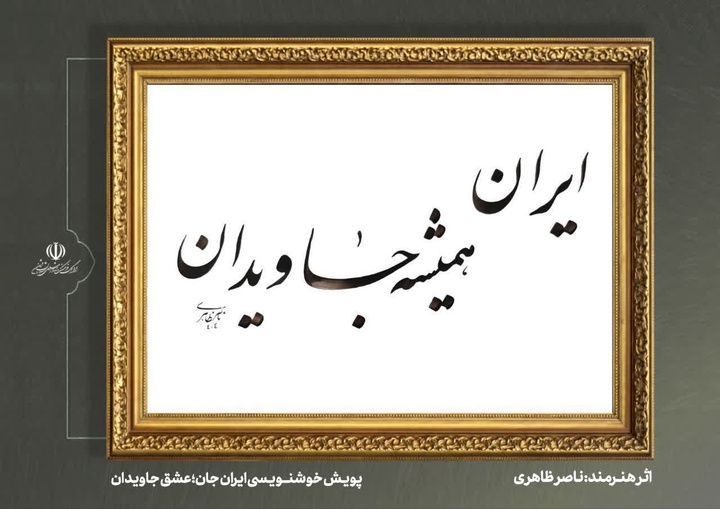 ایران
همیشه جاویدان
ناصر ظاهری
اثر هنرمند: ناصر ظاهری
پویش خوشنویسی ایران جان؛ عشق جاویدان